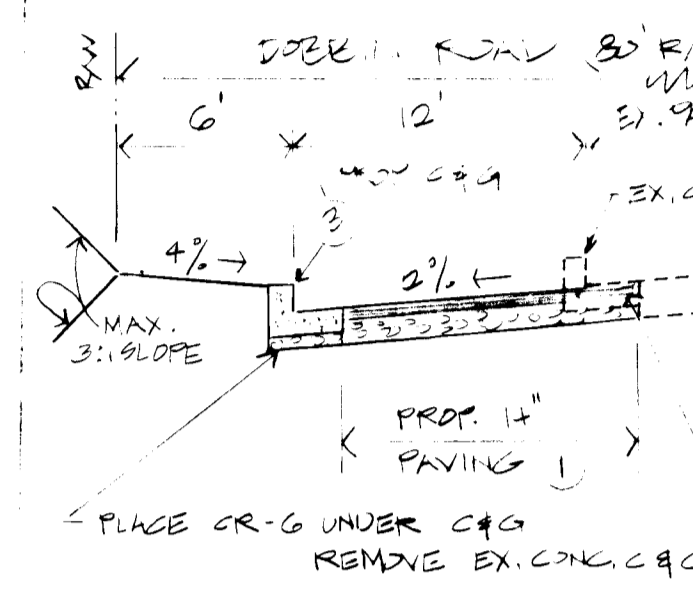 R/W
ROAD (80' R/
6'
12'
EX. 
C & G
3
EX. C
4%
2%
MAX.
3:1 SLOPE
PROP. 14"
PAVING 1
PLACE CR-6 UNDER C&G
REMOVE EX. CONC. C & G